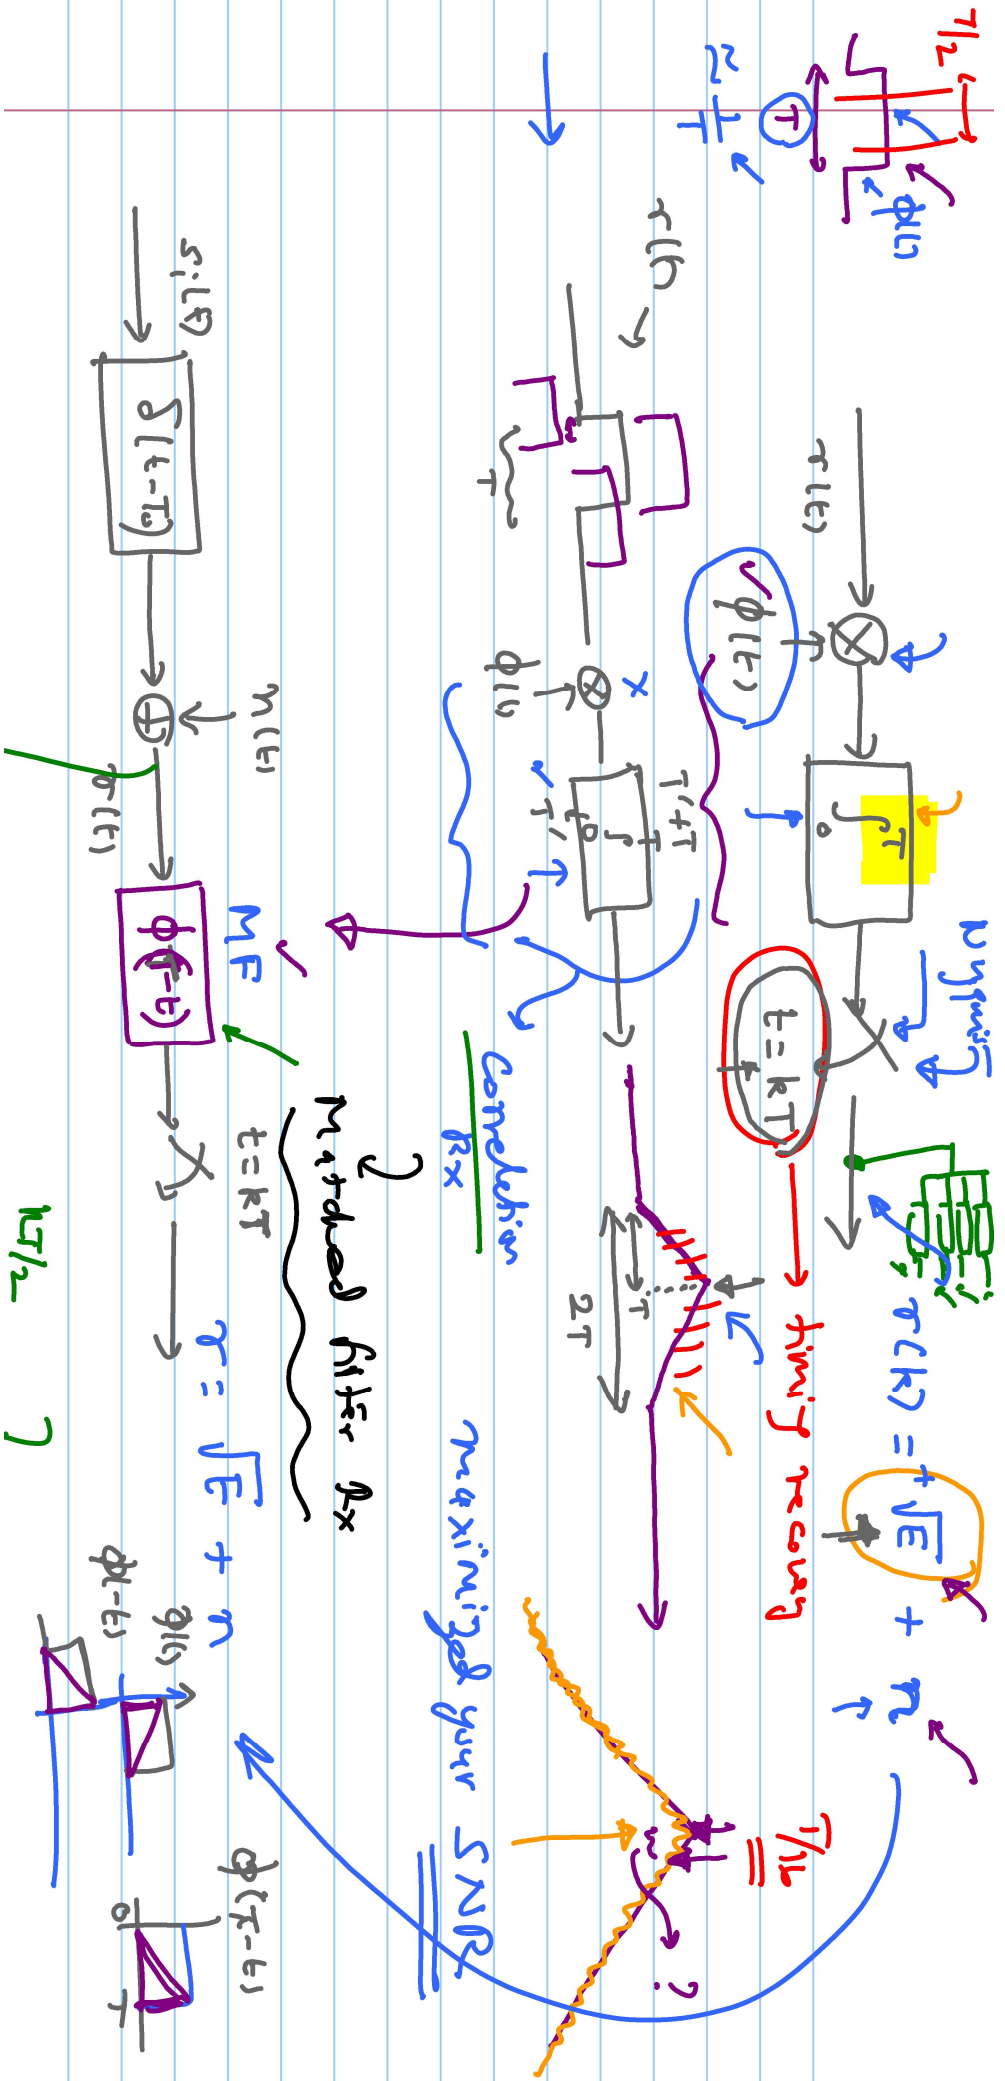 T/2
φ(t)
T
≈ 1/T
r(t)
φ(t)
∫ T 0
Nyquist
t = kT
r(k) = ± √E + n
timing recovery
r(t)
T
x
φ(t)
T'+T
∫ T 0
T'
T
2T
T/16
?
Correlation
Rx
maximized your SNR
si(t)
δ(t-To)
n(t)
r(t)
MF
φ(T-t)
t = kT
Matched filter Rx
r = √E + n
φ(t)
φ(-t)
φ(T-t)
0
T
kT/2